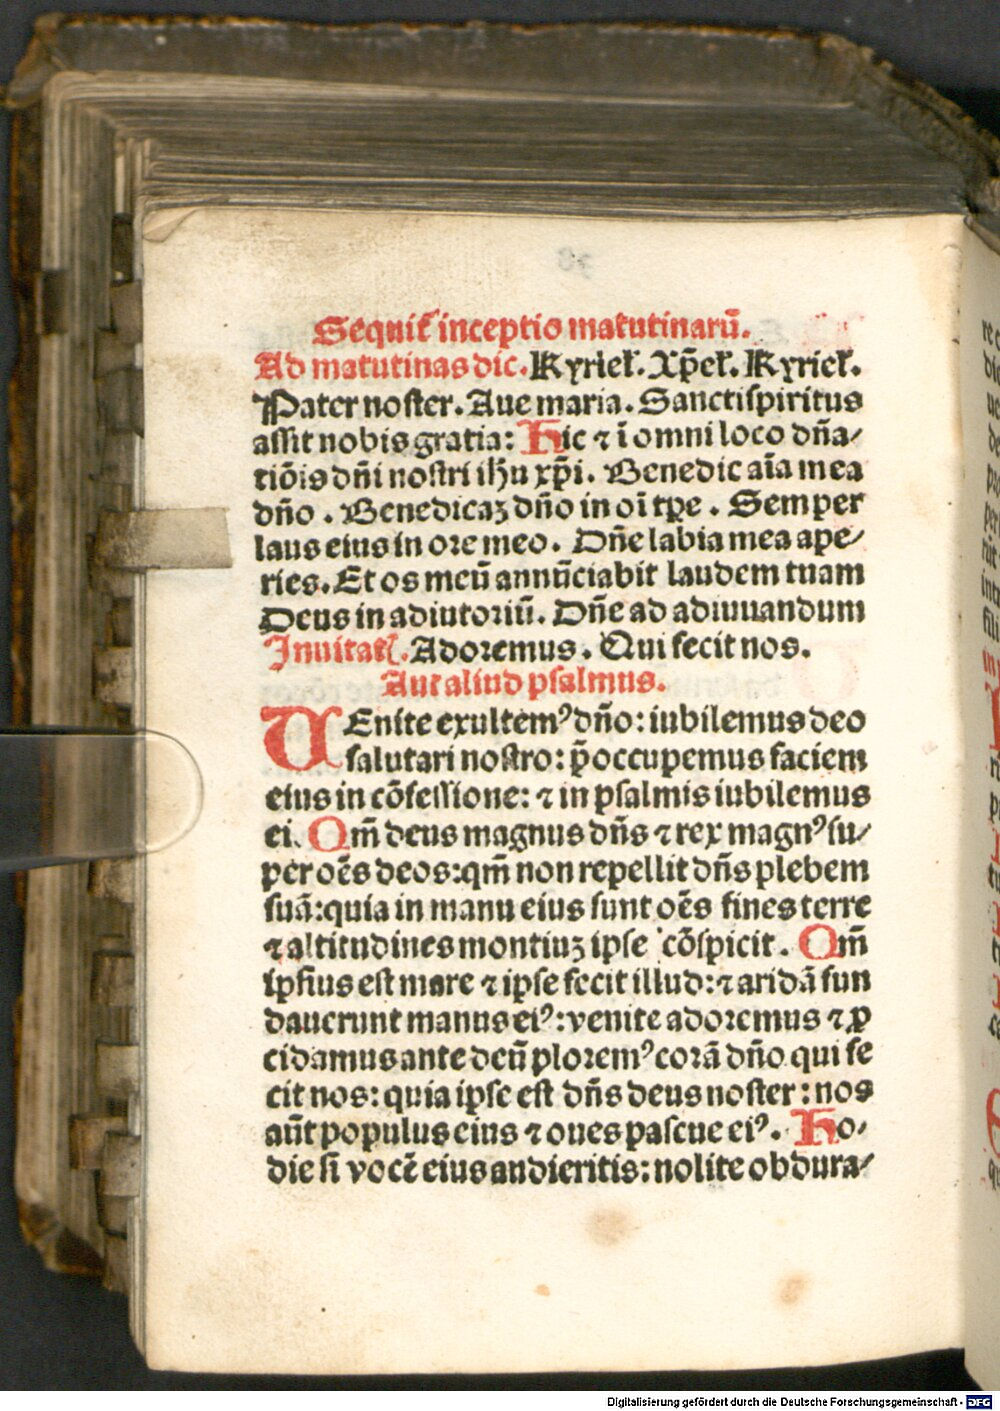 Sequit᷑ inceptio matutinarū.
Ad matutinas dic. Kyriel᷑. Xp̄el᷑. Kyriel᷑.
Pater noster. Aue maria. Sanctispiritus
assit nobis gratia: Hic ⁊ ī omni loco dn̄a⸗
tiōis dn̄i nostri ihu xp̄i. Benedic aīa mea
dn̄o. Benedicaꝫ dn̄o in oī tꝑe. Semper
laus eius in ore meo. Dn̄e labia mea ape⸗
ries. Et os meū annūciabit laudem tuam
Deus in adiutoriū. Dn̄e ad adiuuandum
Inuitat᷑. Adoremus. Qui fecit nos.
Aut aliud psalmus.
VEnite exultemꝰ dn̄o: iubilemus deo
salutari nostro: p̄occupemus faciem
eius in cōfessione: ⁊ in psalmis iubilemus
ei. Qm̄ deus magnus dn̄s ⁊ rex magnꝰ su⸗
per oēs deos: qm̄ non repellit dn̄s plebem
suā: quia in manu eius sunt oēs fines terre
⁊ altitudines montiuꝫ ipse cōspicit. Qm̄
ipsius est mare ⁊ ipse fecit illud: ⁊ aridā fun
dauerunt manus eiꝰ: venite adoremus ⁊ ꝓ
cidamus ante deū ploremꝰ corā dn̄o qui fe
cit nos: quia ipse est dn̄s deus noster: nos
aūt populus eius ⁊ oues pascue eiꝰ. Ho⸗
die si vocē eius audieritis: nolite obdura⸗
Digitalisierung gefördert durch die Deutsche Forschungsgemeinschaft - DFG